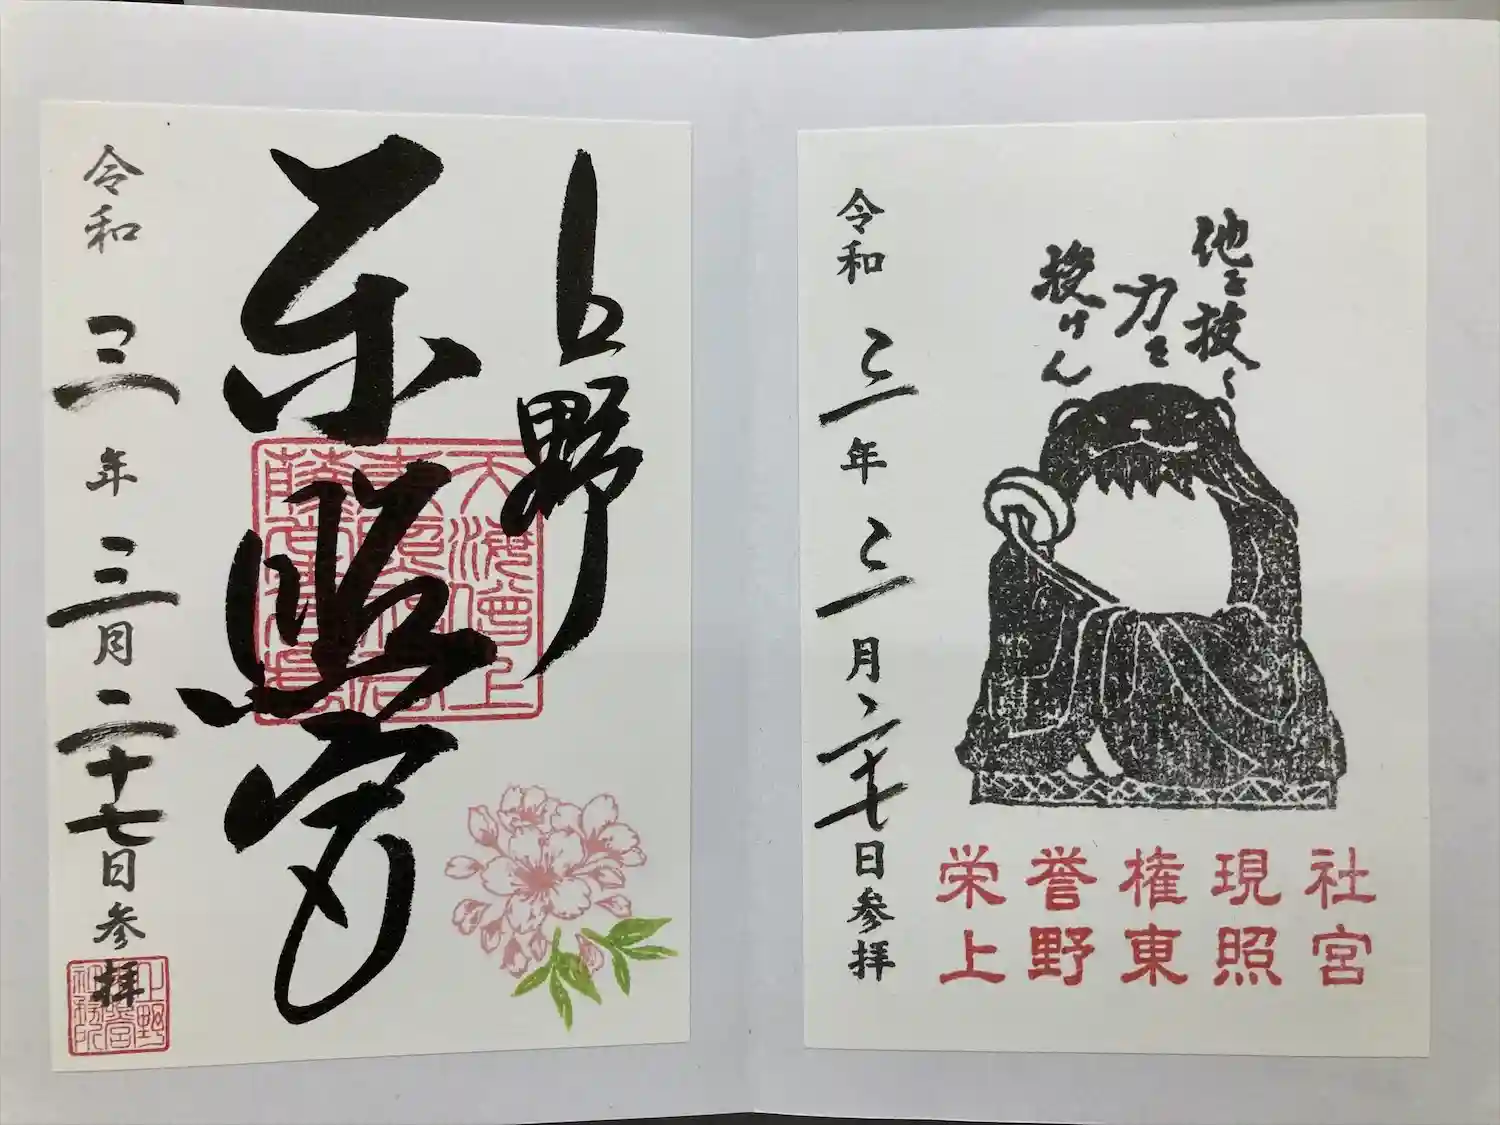 上野
東照宮
令和三年三月二十七日参拝
上野
東照宮
社務所
他を抜く
力を
授けん
令和三年三月二十七日参拝
栄誉権現社
上野東照宮